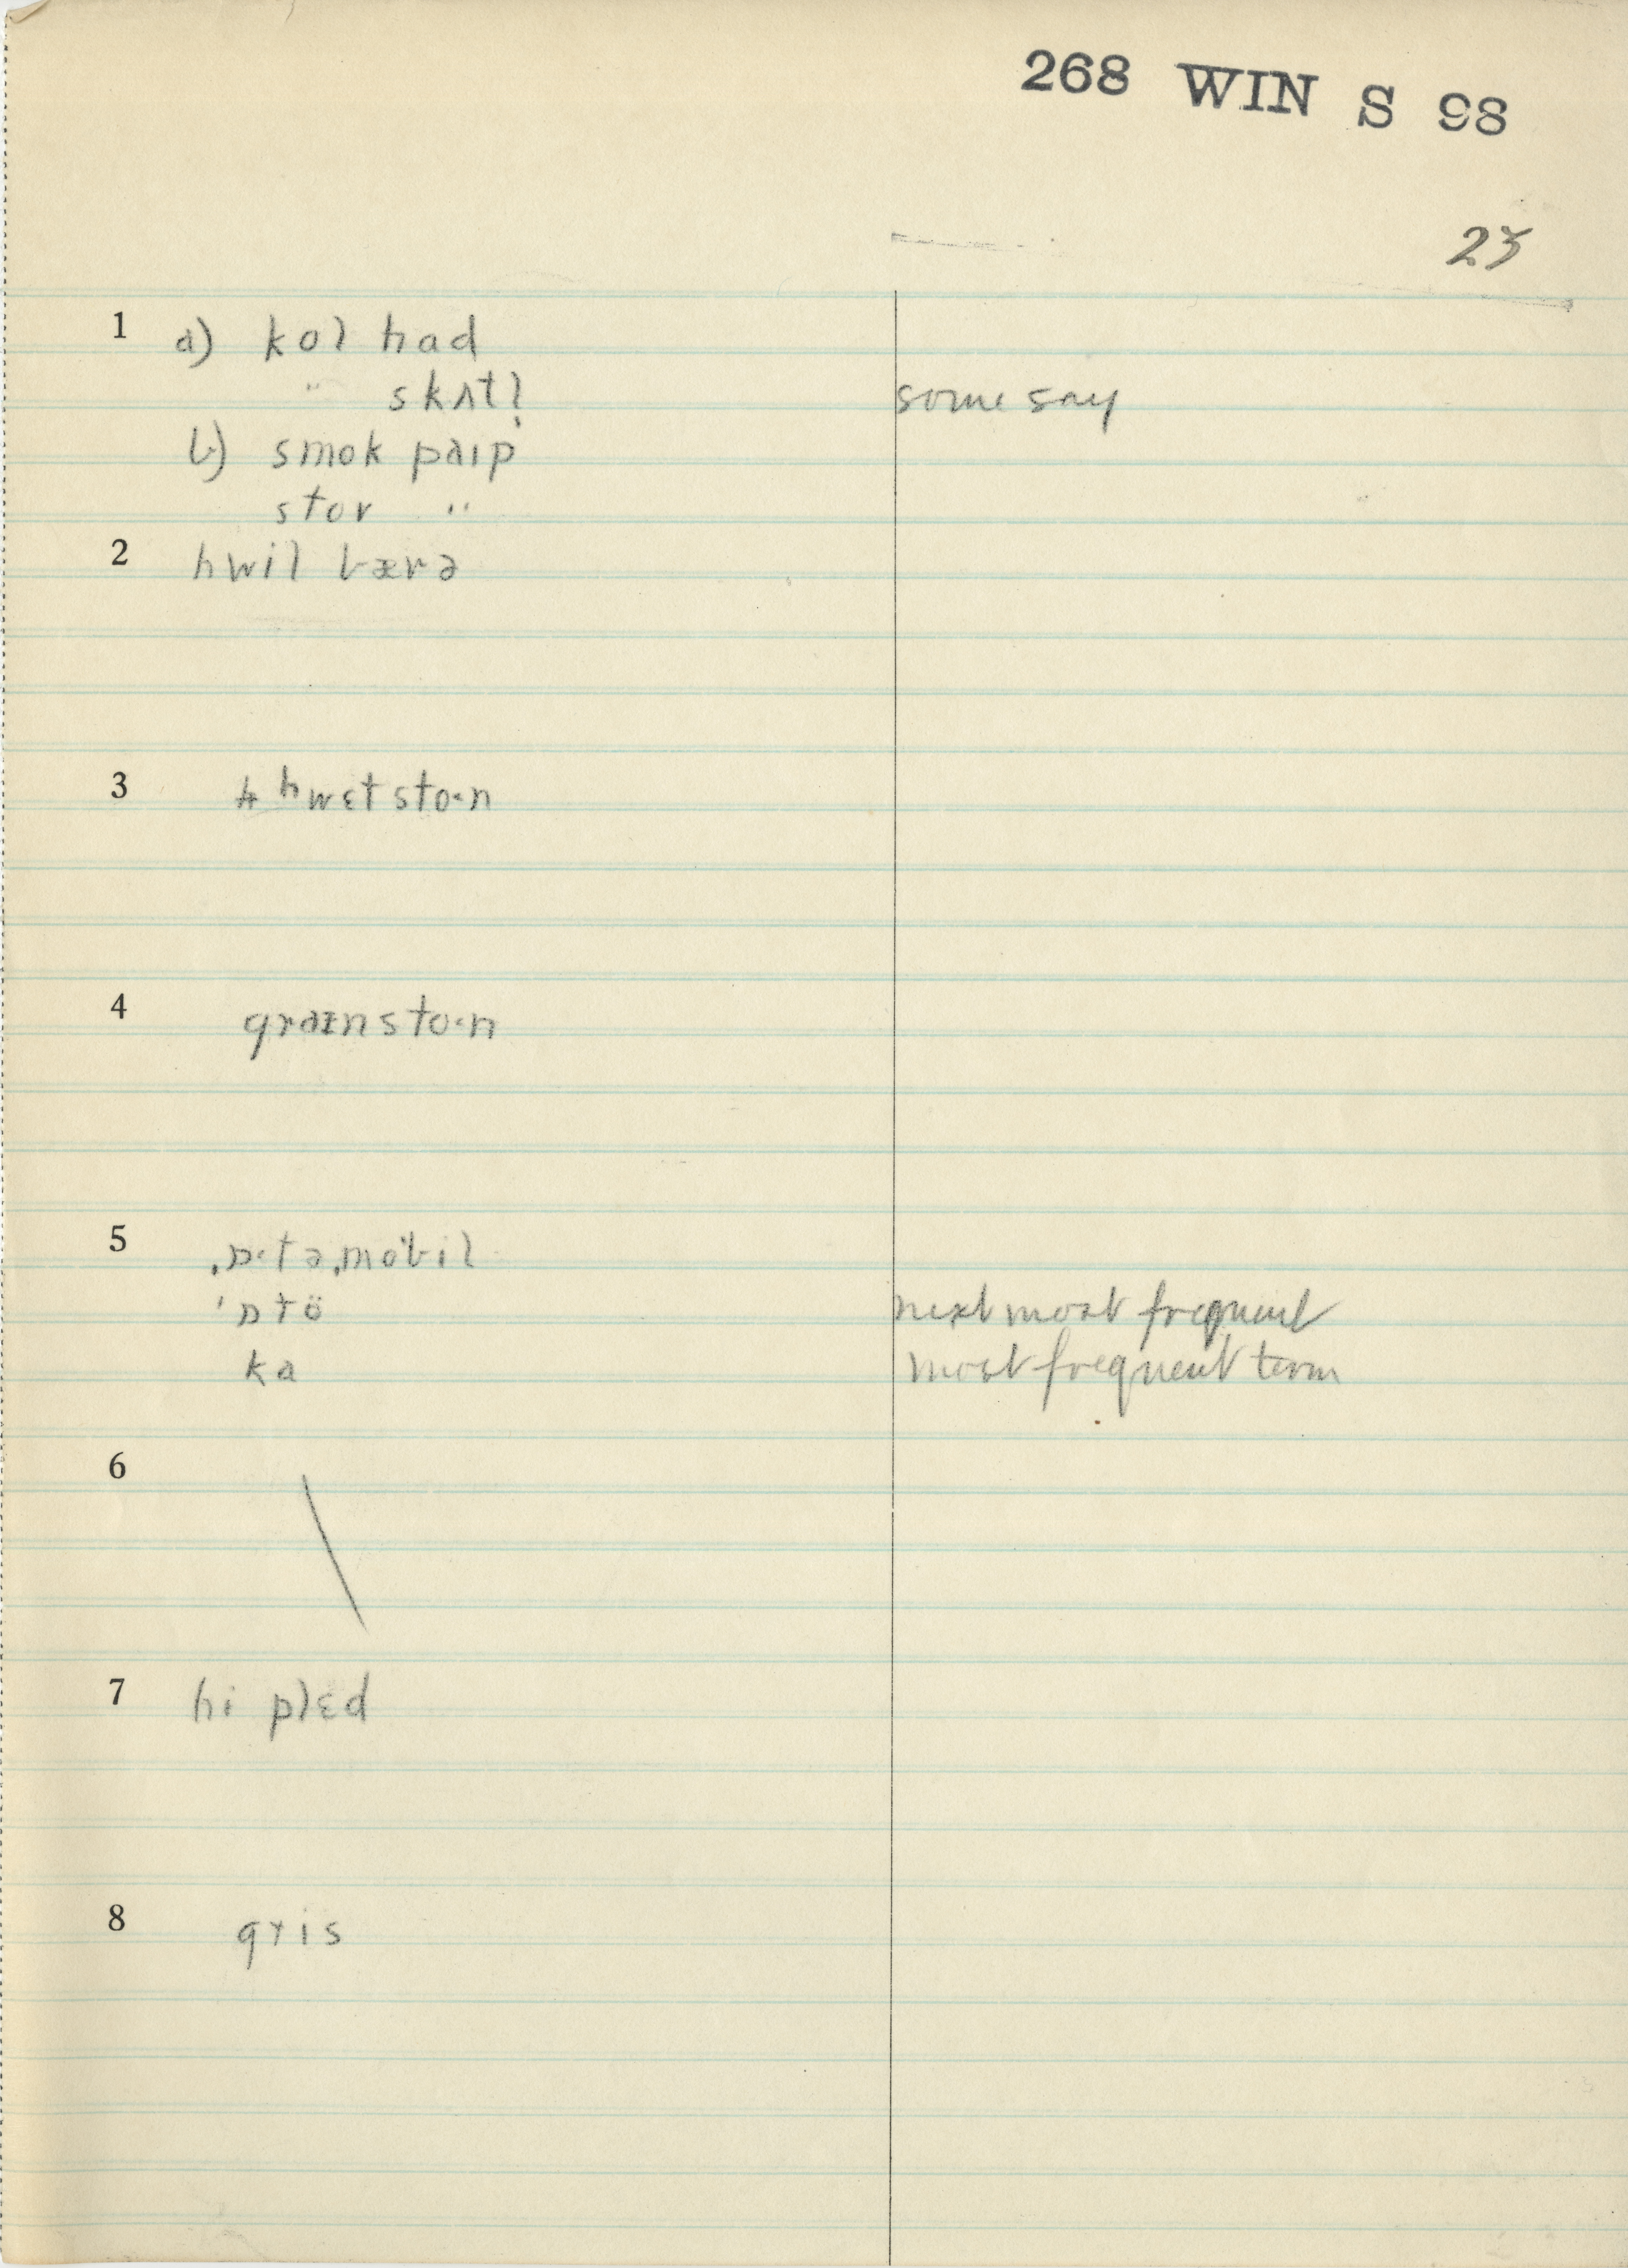 268 WIN S 98
23
1 a) kol had
" skʌtl̩ some say
b) smok paɪp
stov "
2 hwil bærə
3 hwɛtsto·n
4 graɪnsto·n
5 ˌɒ·təˌmöbil
ˈɒtö next most frequent
ka most frequent term
6
7 hi plɛd
8 gris